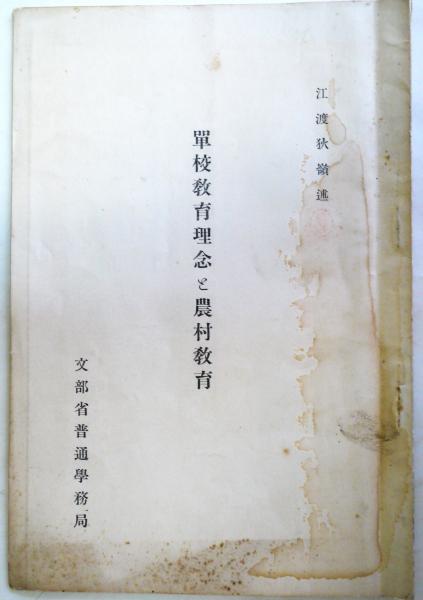 江渡狄嶺述
單校敎育理念と農村敎育
文部省普通學務局